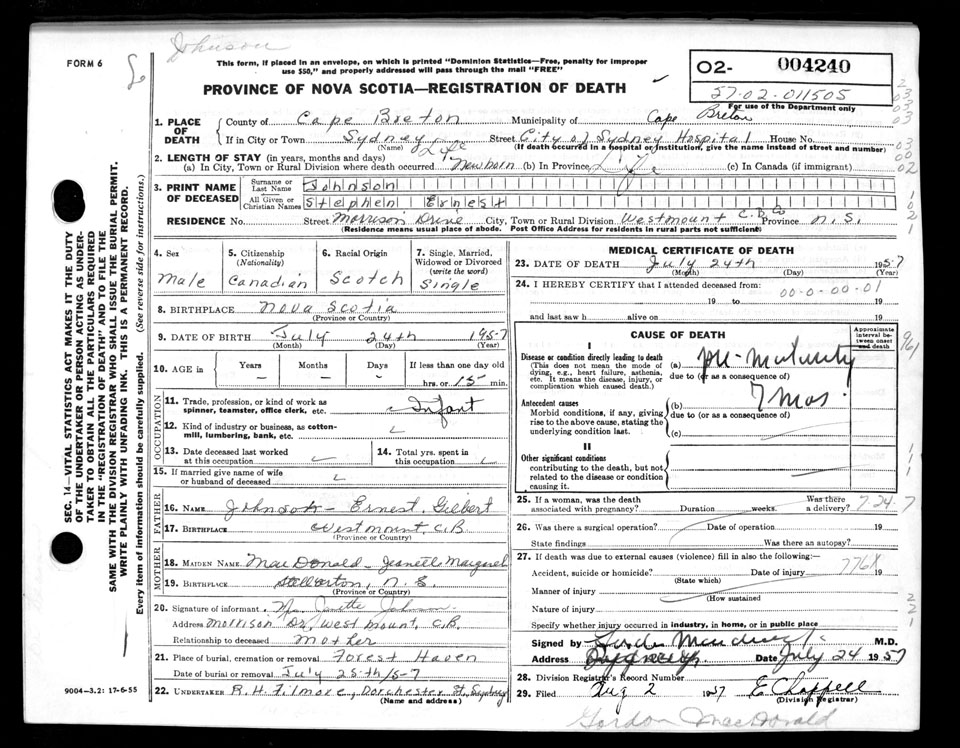 Johnson
FORM 6
This form, if placed in an envelope, on which is printed "Dominion Statistics—Free, penalty for improper
use $50," and properly addressed will pass through the mail "FREE"
PROVINCE OF NOVA SCOTIA—REGISTRATION OF DEATH
02- 004240
57-02-011505
For use of the Department only
1. PLACE OF DEATH
County of Cape Breton Municipality of Cape Breton
If in City or Town Sydney Street City of Sydney Hospital House No.
(Name) (If death occurred in a hospital or institution, give the name instead of street and number)
2. LENGTH OF STAY (in years, months and days)
(a) In City, Town or Rural Division where death occurred Newborn (b) In Province Life (c) In Canada (if immigrant)
3. PRINT NAME OF DECEASED
Surname or Last Name Johnson
All Given or Christian Names Stephen Ernest
RESIDENCE No. Street Morrison Drive City, Town or Rural Division Westmount C.B. Co Province N.S.
(Residence means usual place of abode. Post Office Address for residents in rural parts not sufficient)
4. Sex
Male
5. Citizenship (Nationality)
Canadian
6. Racial Origin
Scotch
7. Single, Married, Widowed or Divorced (write the word)
Single
8. BIRTHPLACE Nova Scotia
(Province or Country)
9. DATE OF BIRTH July 24th 1957
(Month) (Day) (Year)
10. AGE in Years – Months – Days – If less than one day old hrs. or 15 min.
OCCUPATION
11. Trade, profession, or kind of work as spinner, teamster, office clerk, etc. Infant
12. Kind of industry or business, as cotton-mill, lumbering, bank, etc.
13. Date deceased last worked at this occupation
14. Total yrs. spent in this occupation
15. If married give name of wife or husband of deceased
FATHER
16. NAME Johnson - Ernest Gilbert
17. BIRTHPLACE Westmount, C.B.
(Province or Country)
MOTHER
18. MAIDEN NAME MacDonald - Jeanette Margaret
19. BIRTHPLACE Stellarton, N.S.
(Province or Country)
20. Signature of informant Johnson
Address Morrison Dr., Westmount, C.B.
Relationship to deceased Mother
21. Place of burial, cremation or removal Forest Haven
Date of burial or removal July 25th/57
22. UNDERTAKER R.H. Filmore, Dorchester St. Sydney
(Name and address)
9004—3.2: 17-6-55
SEC. 14—VITAL STATISTICS ACT MAKES IT THE DUTY
OF THE UNDERTAKER OR PERSON ACTING AS UNDER-
TAKER TO OBTAIN ALL THE PARTICULARS REQUIRED
IN THE "REGISTRATION OF DEATH" AND TO FILE THE
SAME WITH THE DIVISION REGISTRAR WHO SHALL ISSUE THE BURIAL PERMIT.
WRITE PLAINLY WITH UNFADING INK. THIS IS A PERMANENT RECORD.
Every item of information should be carefully supplied. (See reverse side for instructions.)
MEDICAL CERTIFICATE OF DEATH
23. DATE OF DEATH July 24th 1957
(Month) (Day) (Year)
24. I HEREBY CERTIFY that I attended deceased from:
00-0-00-01
19 to 19
and last saw h alive on 19
CAUSE OF DEATH
Approximate interval between onset and death
I
Disease or condition directly leading to death
(This does not mean the mode of dying, e.g., heart failure, asthenia, etc. It means the disease, injury, or complication which caused death.)
(a) pre-maturity
due to (or as a consequence of)
Antecedent causes
Morbid conditions, if any, giving rise to the above cause, stating the underlying condition last.
(b) 7 mos.
due to (or as a consequence of)
(c)
II
Other significant conditions
contributing to the death, but not related to the disease or condition causing it.
25. If a woman, was the death associated with pregnancy? Duration weeks. Was there a delivery? 724 7
26. Was there a surgical operation? Date of operation 19
State findings Was there an autopsy?
27. If death was due to external causes (violence) fill in also the following:—
Accident, suicide or homicide? Date of injury 19
(State which) 776X
Manner of injury
(How sustained
Nature of injury
Specify whether injury occurred in industry, in home, or in public place
Signed by M.D.
Address Date July 24 1957
28. Division Registrar's Record Number
29. Filed Aug 2 1957 E Chappell
(Division Registrar)
Gordon MacDonald